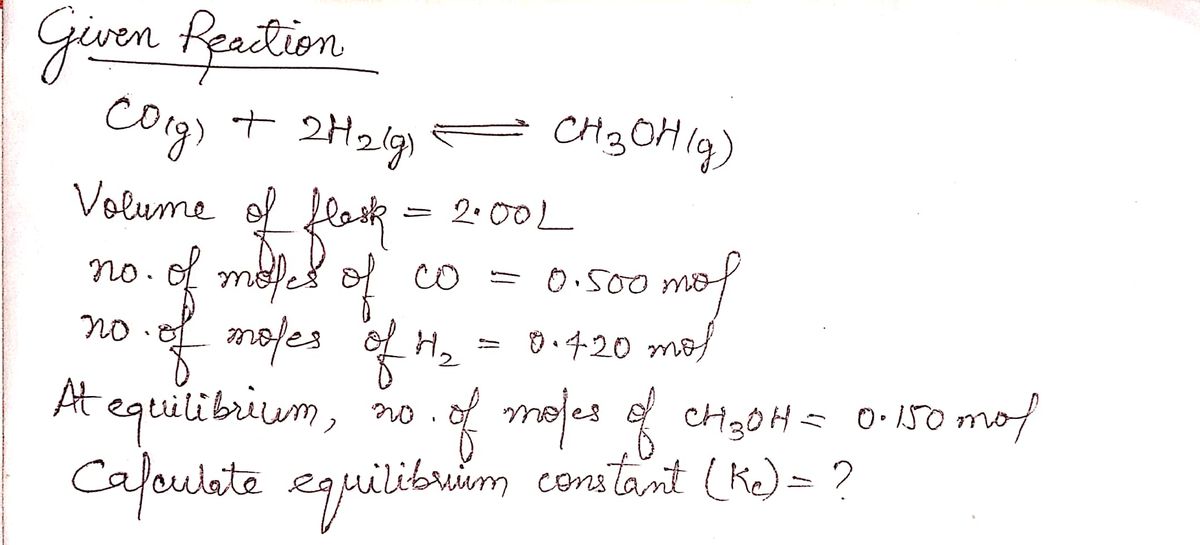 Given Reaction
CO(g) + 2H2(g) ⇌ CH3OH(g)
Volume of flask = 2.00L
no. of moles of CO = 0.500 mol
no. of moles of H2 = 0.420 mol
At equilibrium, no. of moles of CH3OH = 0.150 mol
Calculate equilibrium constant (Kc) = ?